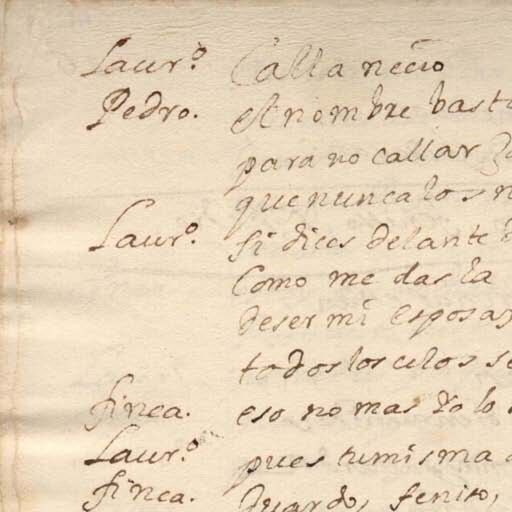 Laur.º Calla necio
Pedro. el nombre bast
para no callar
que nunca los n
Laur.º si dices delante d
Como me das la
de ser mi esposa
todos los celos se
finea. eso no mas yo lo
Laur.º pues tu misma
finea. Duardo, feniso,